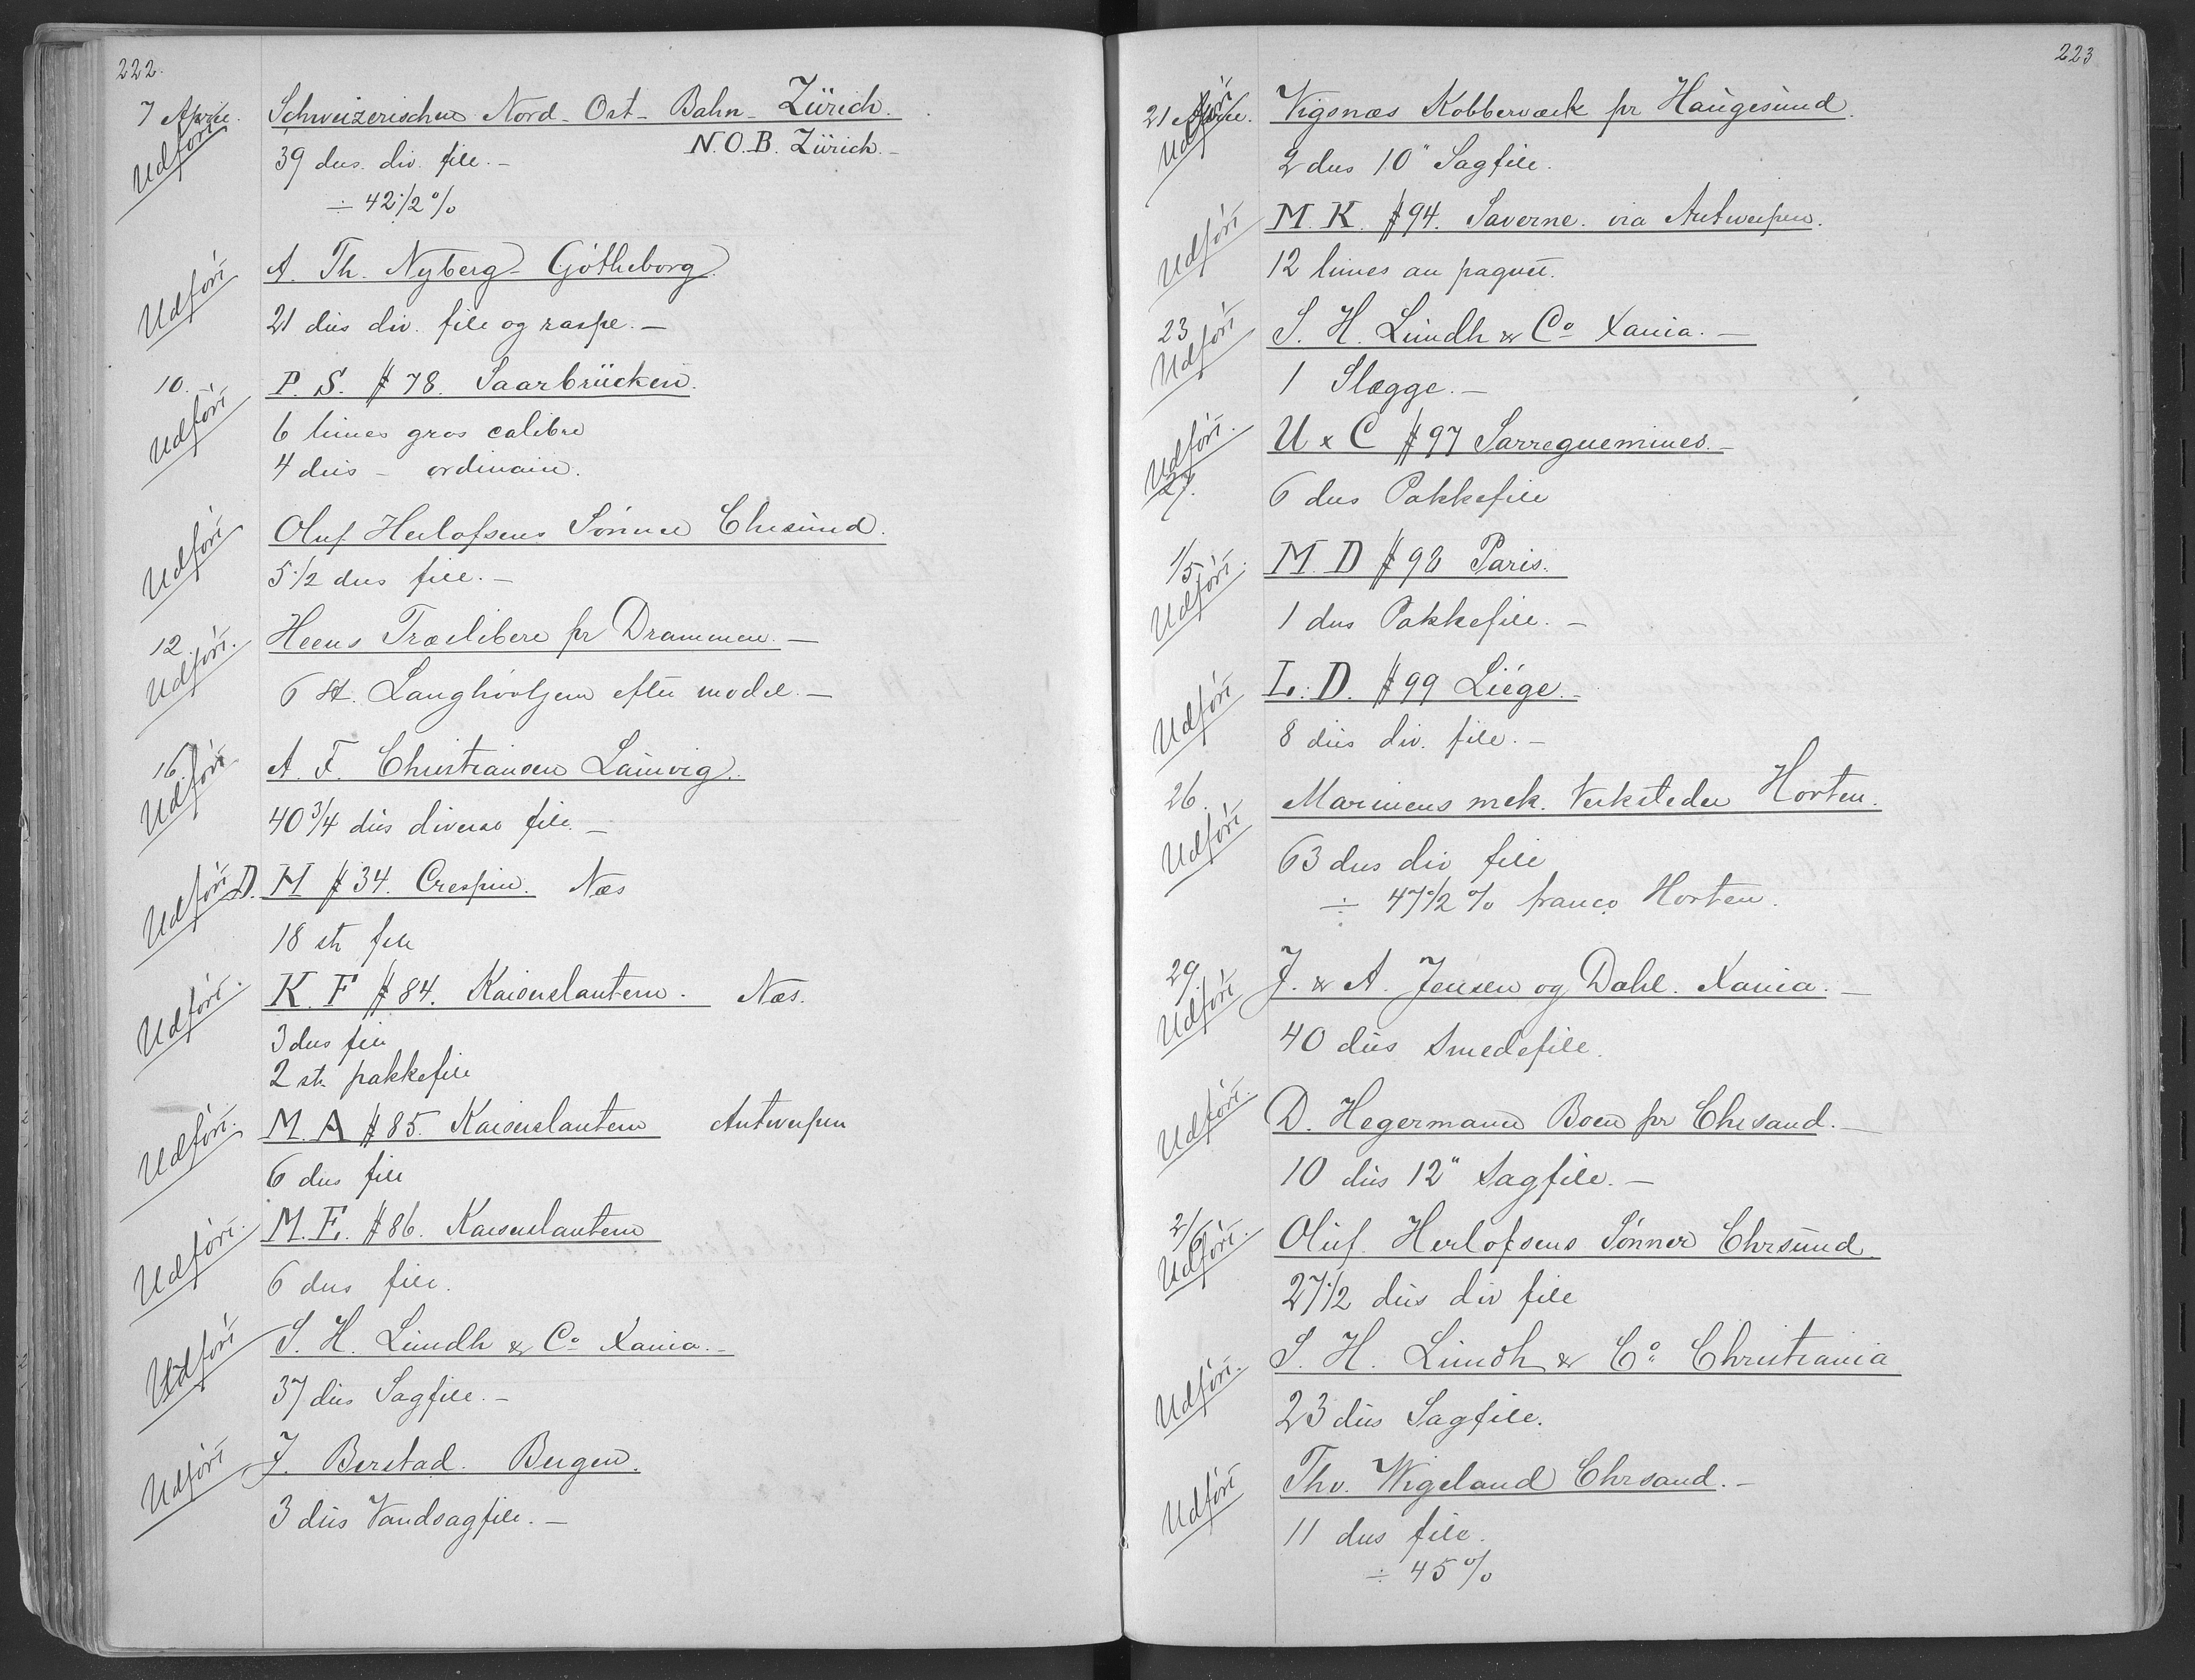 222.
7 April. Schweizerischen Nord-Ost-Bahn-Zürich.
Udført
39 dus. div. file.- N.O.B. Zürich.-
÷ 42 1/2 %
Udført A. Th. Nyberg- Götheborg.
21 dus div. file og raspe.-
10. P. S. # 78. Saarbrücken.
Udført
6 limes gros calibre
4 dus - ordinaire.
Udført Oluf Herlofsens Sønner Chrsund.
5 1/2 dus file.-
12. Heens Træsliberi pr Drammen.-
Udført.
6 st. Langhøvljern efter model.-
16. A. F. Christiansen Laurvig.
Udført
40 3/4 dus diverse file.-
Udført D. H # 34. Crespin. Næs
18 st file
Udført. K. F # 84. Kaiserslautern. Næs.
3 dus file
2 st. pakkefile
Udført. M. A # 85. Kaiserslautern Antwerpen
6 dus file
Udført. M. E. # 86. Kaiserslautern
6 dus file.
Udført S. H. Lundh & Co Xania.-
37 dus Sagfile.-
Udført J. Berstad. Bergen.
3 dus Vandsagfile.-
223
21 April. Vigsnæs Kobberværk pr Haugesund.
Udført
2 dus 10" Sagfile.
Udført M. K. # 94. Saverne. via Antwerpen.
12 limes au paquet.
23 S. H. Lundh & Co Xania.-
Udført
1 Slægge.-
Udført. U & C # 97 Sarreguemines.-
27.
6 dus Pakkefile
1/5. M. D # 98 Paris.
Udført
1 dus Pakkefile.-
Udført L. D. # 99 Liége.-
8 dus div. file.-
26. Marinens mek. Verksteder Horten.
Udført
63 dus div file
÷ 47 1/2 % franco Horten.
29. J. & A. Jensen og Dahl. Xania.-
Udført
40 dus Smedefile.
Udført. D. Hegermann Boen pr Chrsand.-
10 dus 12" Sagfile.-
2/6 Oluf Herlofsens Sønner Chrsund
Udført.
27 1/2 dus div file
Udført. S. H. Lundh & Co. Christiania
23 dus Sagfile.
Udført Thv. Wigeland Chrsand.-
11 dus file.
÷ 45 %